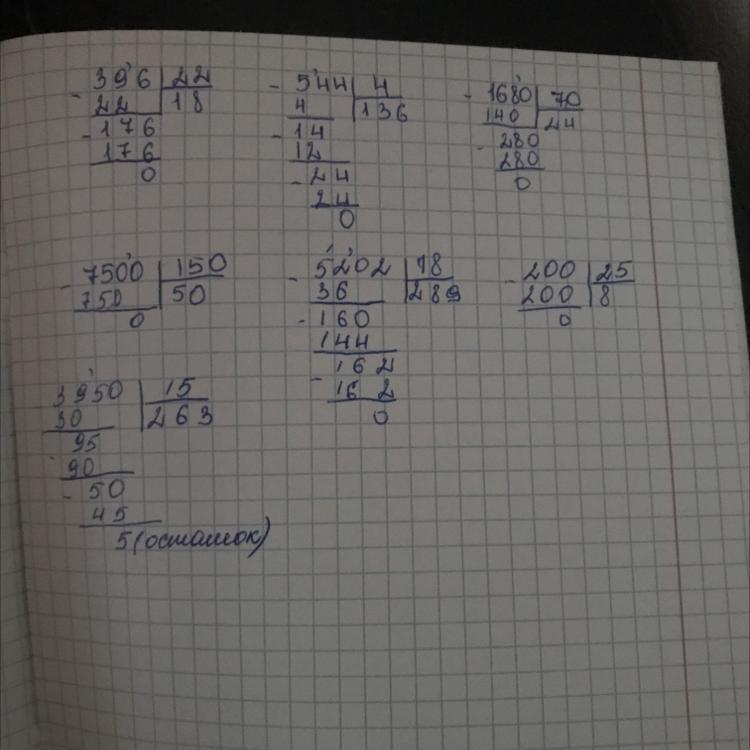 396 22
22 18
176
176
0
544 4
4 136
14
12
24
24
0
1680 70
140 24
280
280
0
7500 150
750 50
0
5202 18
36 289
160
144
162
162
0
200 25
200 8
0
3950 15
30 263
95
90
50
45
5 (остаток)